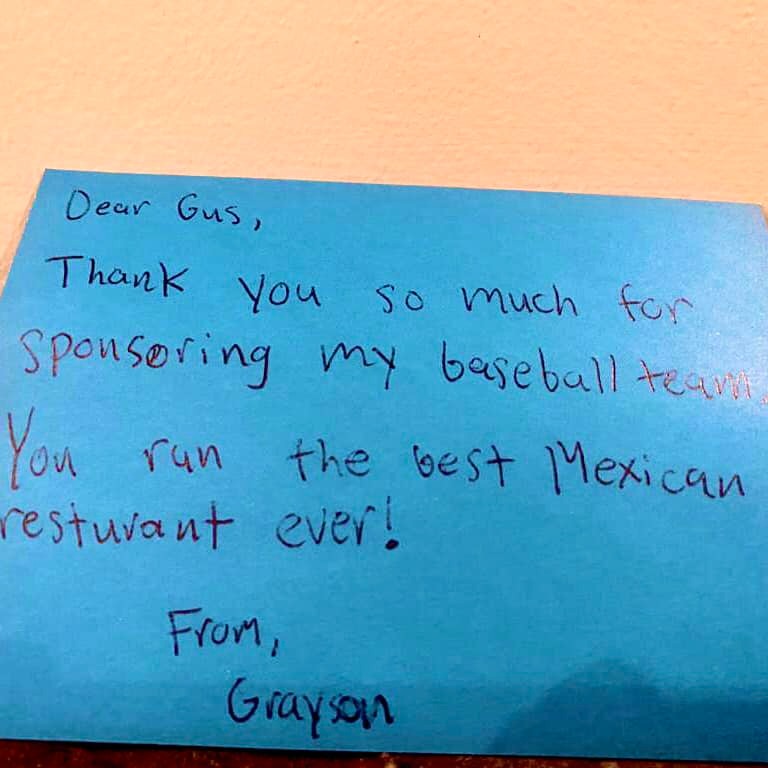 Dear Gus,
Thank you so much for
sponsoring my baseball team.
You run the best Mexican
resturant ever!
From,
Grayson